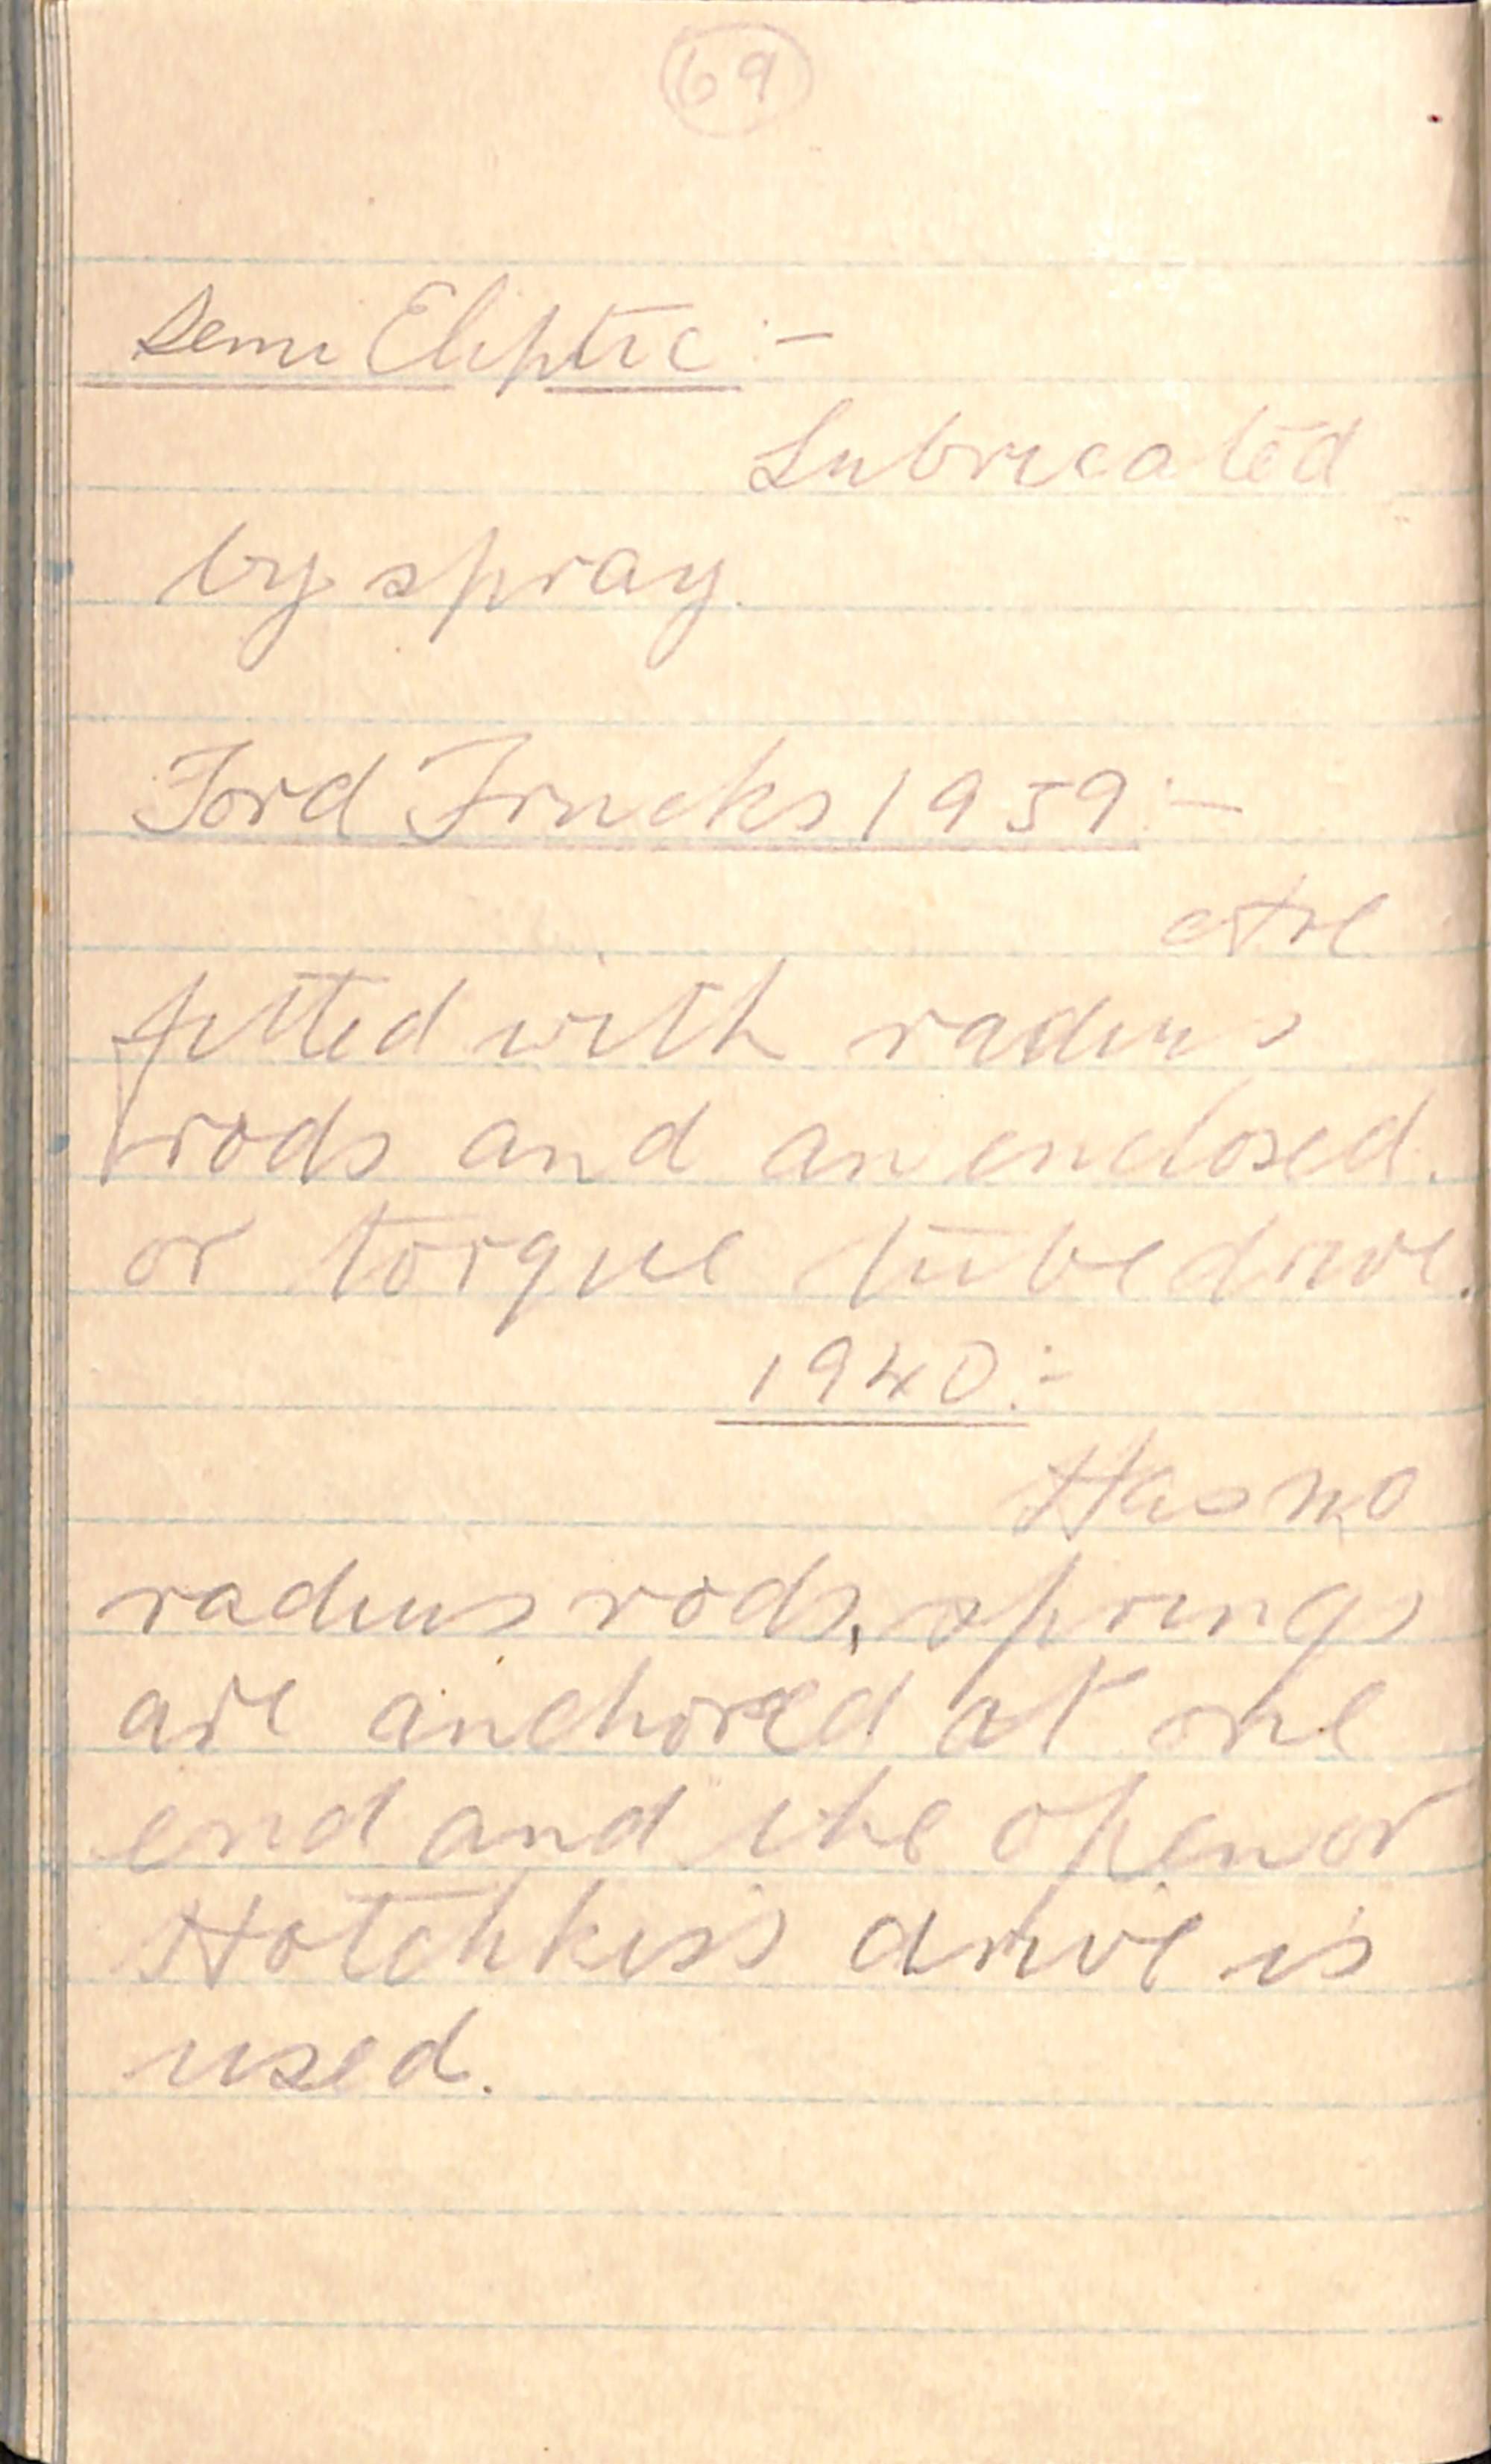 69
Semi Eliptic :-
Lubricated
by spray.
Ford Trucks 1939 :-
Are
fitted with radius
rods and an enclosed.
or torque tube drive.
1940 :-
Has no
radius rods, springs
are anchored at one
end and the open or
Hotchkiss drive is
used.